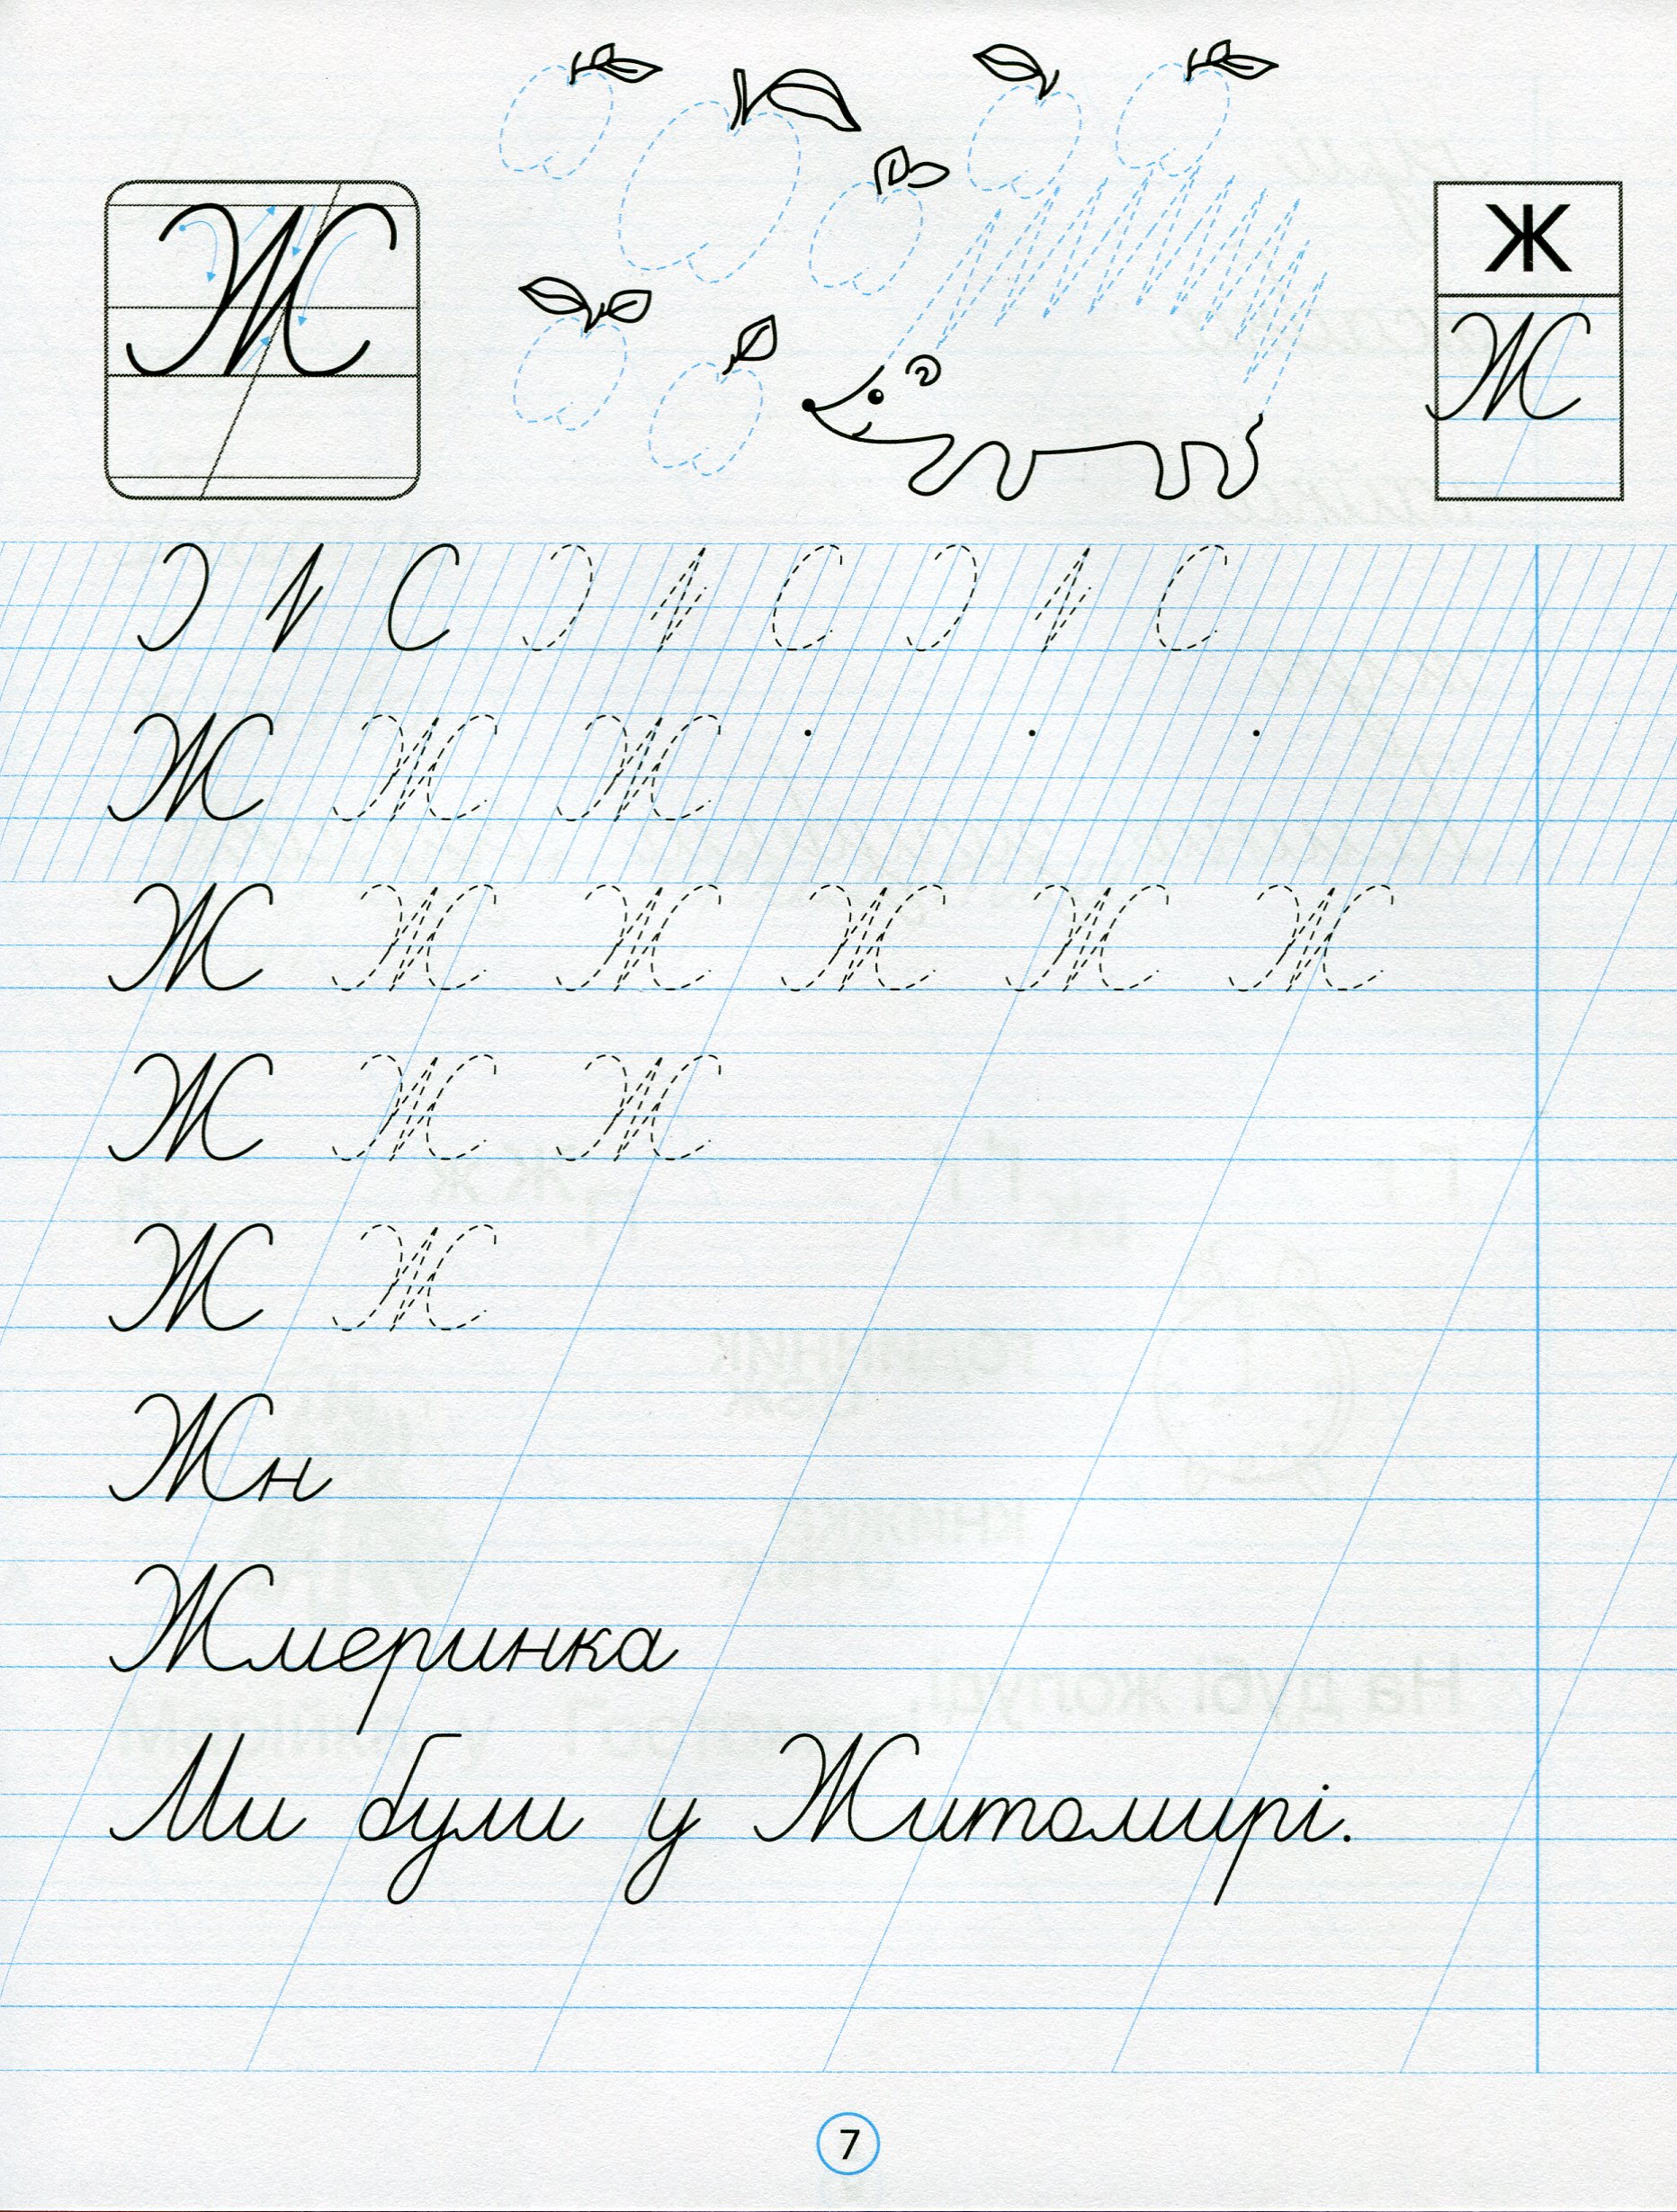 Ж
Ж
Ж
Ж Ж Ж
Ж Ж Ж Ж Ж Ж
Ж Ж Ж
Ж Ж
Жн
Жмеринка
Ми були у Житомирі.
7